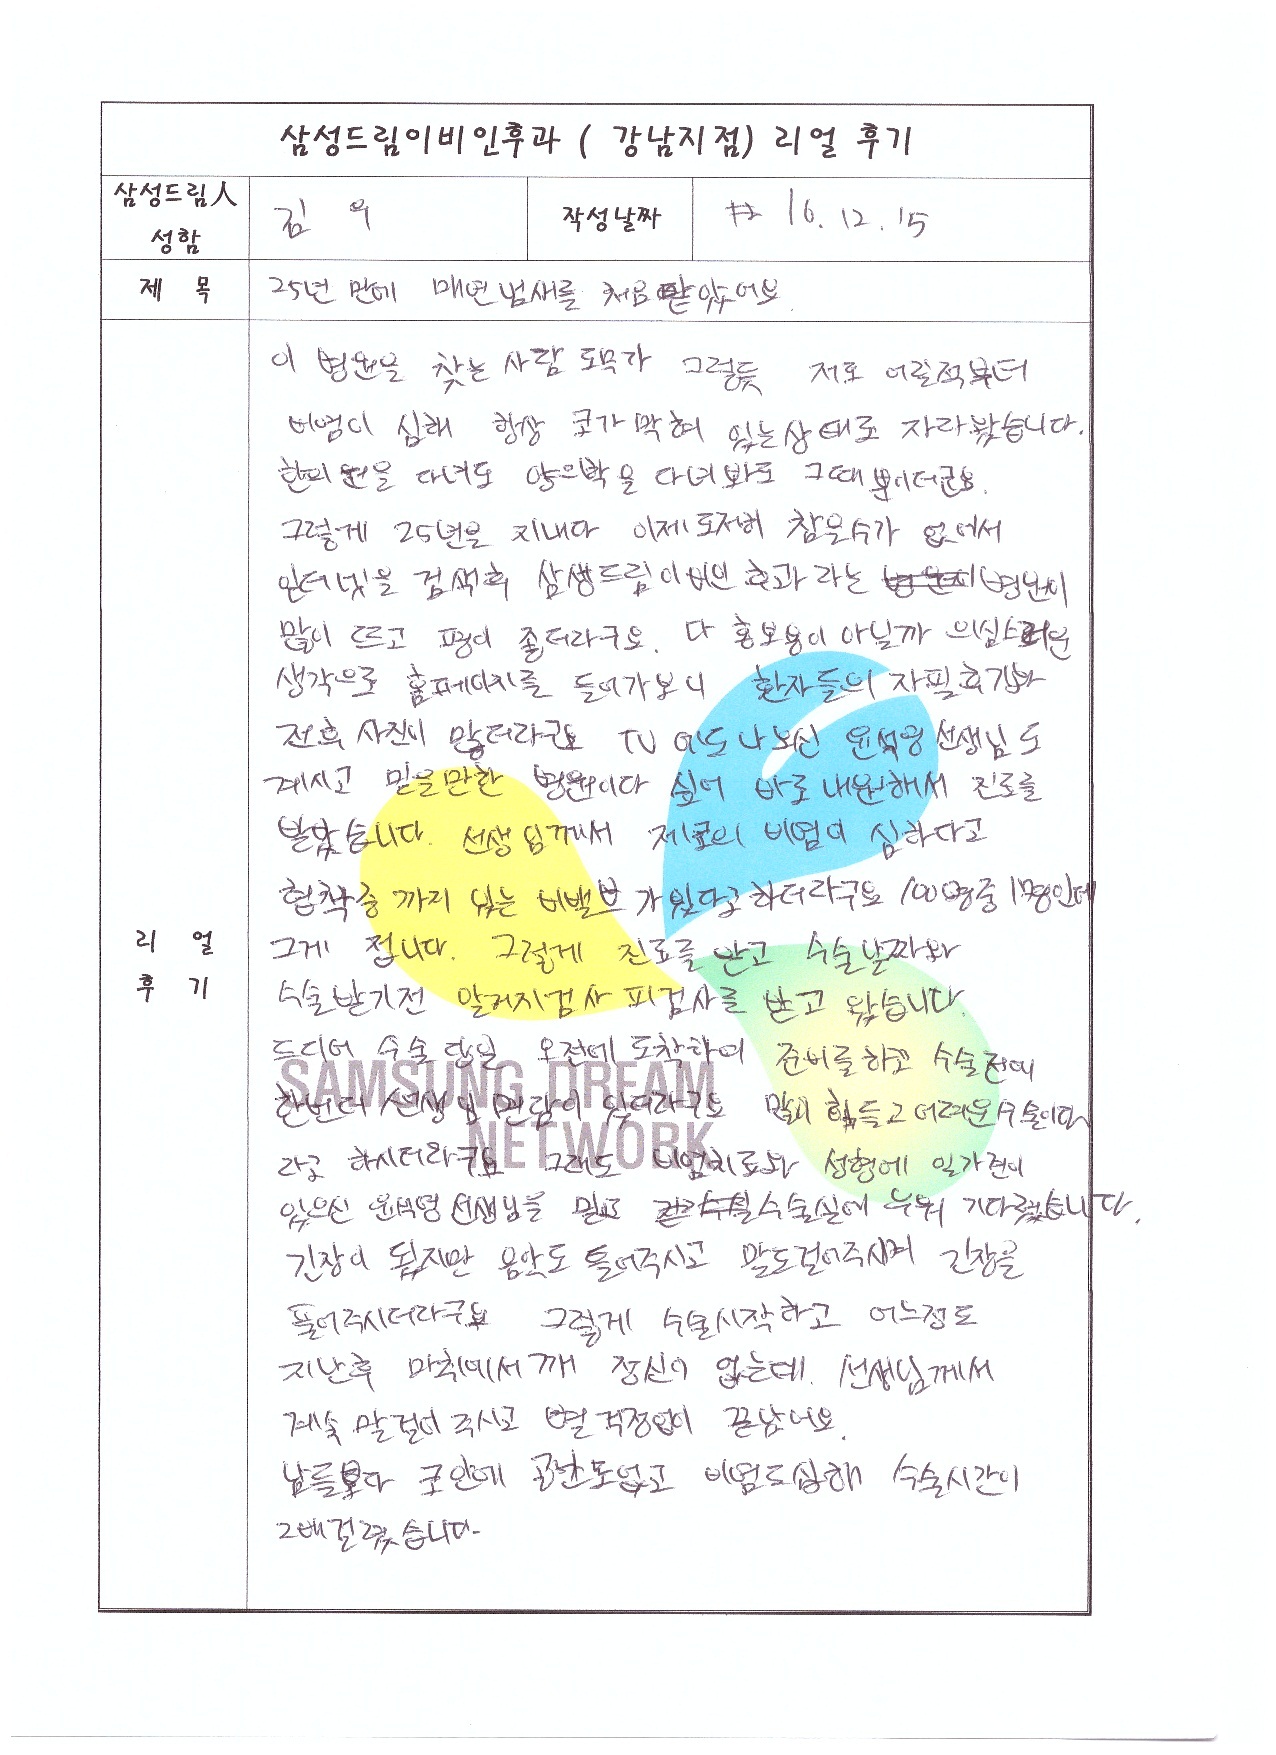 삼성드림이비인후과 ( 강남지점) 리얼 후기
삼성드림人 성함
김 우
작성날짜
16. 12. 15
제 목
25년 만에 매연냄새를 처음 맡았어요
리 얼 후 기
이 병원을 찾는 사람 모두가 그렇듯 저도 어릴적부터
비염이 심해 항상 코가 막혀 있는상태로 자라왔습니다.
한의원을 다녀도 양의학을 다녀봐도 그때뿐이더군요.
그렇게 25년을 지내다 이제 도저히 참을수가 없어서
인터넷을 검색후 삼성드림이비인후과 라는 병원이
많이 뜨고 평이 좋더라구요. 다 홍보용이 아닐까 의심스러운
생각으로 홈페이지를 들어가보니 환자들의 자필후기와
전후 사진이 많더라구요 TV 에도 나오신 윤석영 선생님도
계시고 믿을만한 병원이다 싶어 바로 내원해서 진료를
받았습니다. 선생님께서 제 코의 비염이 심하다고
협착증 까지 있는 비밸브가 있다고 하더라구요 100명중 1명인데
그게 접니다. 그렇게 진료를 받고 수술날짜와
수술받기전 알러지검사 피검사를 받고 왔습니다.
드디어 수술 당일 오전에 도착하여 준비를 하고 수술전에
한번더 선생님 면담이 있더라구요 많이 힘들고 어려운수술이다
라고 하시더라구요 그래도 비염치료와 성형에 일가견이
있으신 윤석영 선생님을 믿고 수술실에 누워 기다렸습니다.
긴장이 됬지만 음악도 틀어주시고 말도걸어주시며 긴장을
풀어주시더라구요 그렇게 수술시작하고 어느정도
지난후 마취에서 깨 정신이 없는데. 선생님께서
계속 말걸어 주시고 별 걱정없이 끝났어요.
남들보다 코안에 공간도없고 비염도심해 수술시간이
2배 걸렸습니다-
SAMSUNG DREAM
NETWORK